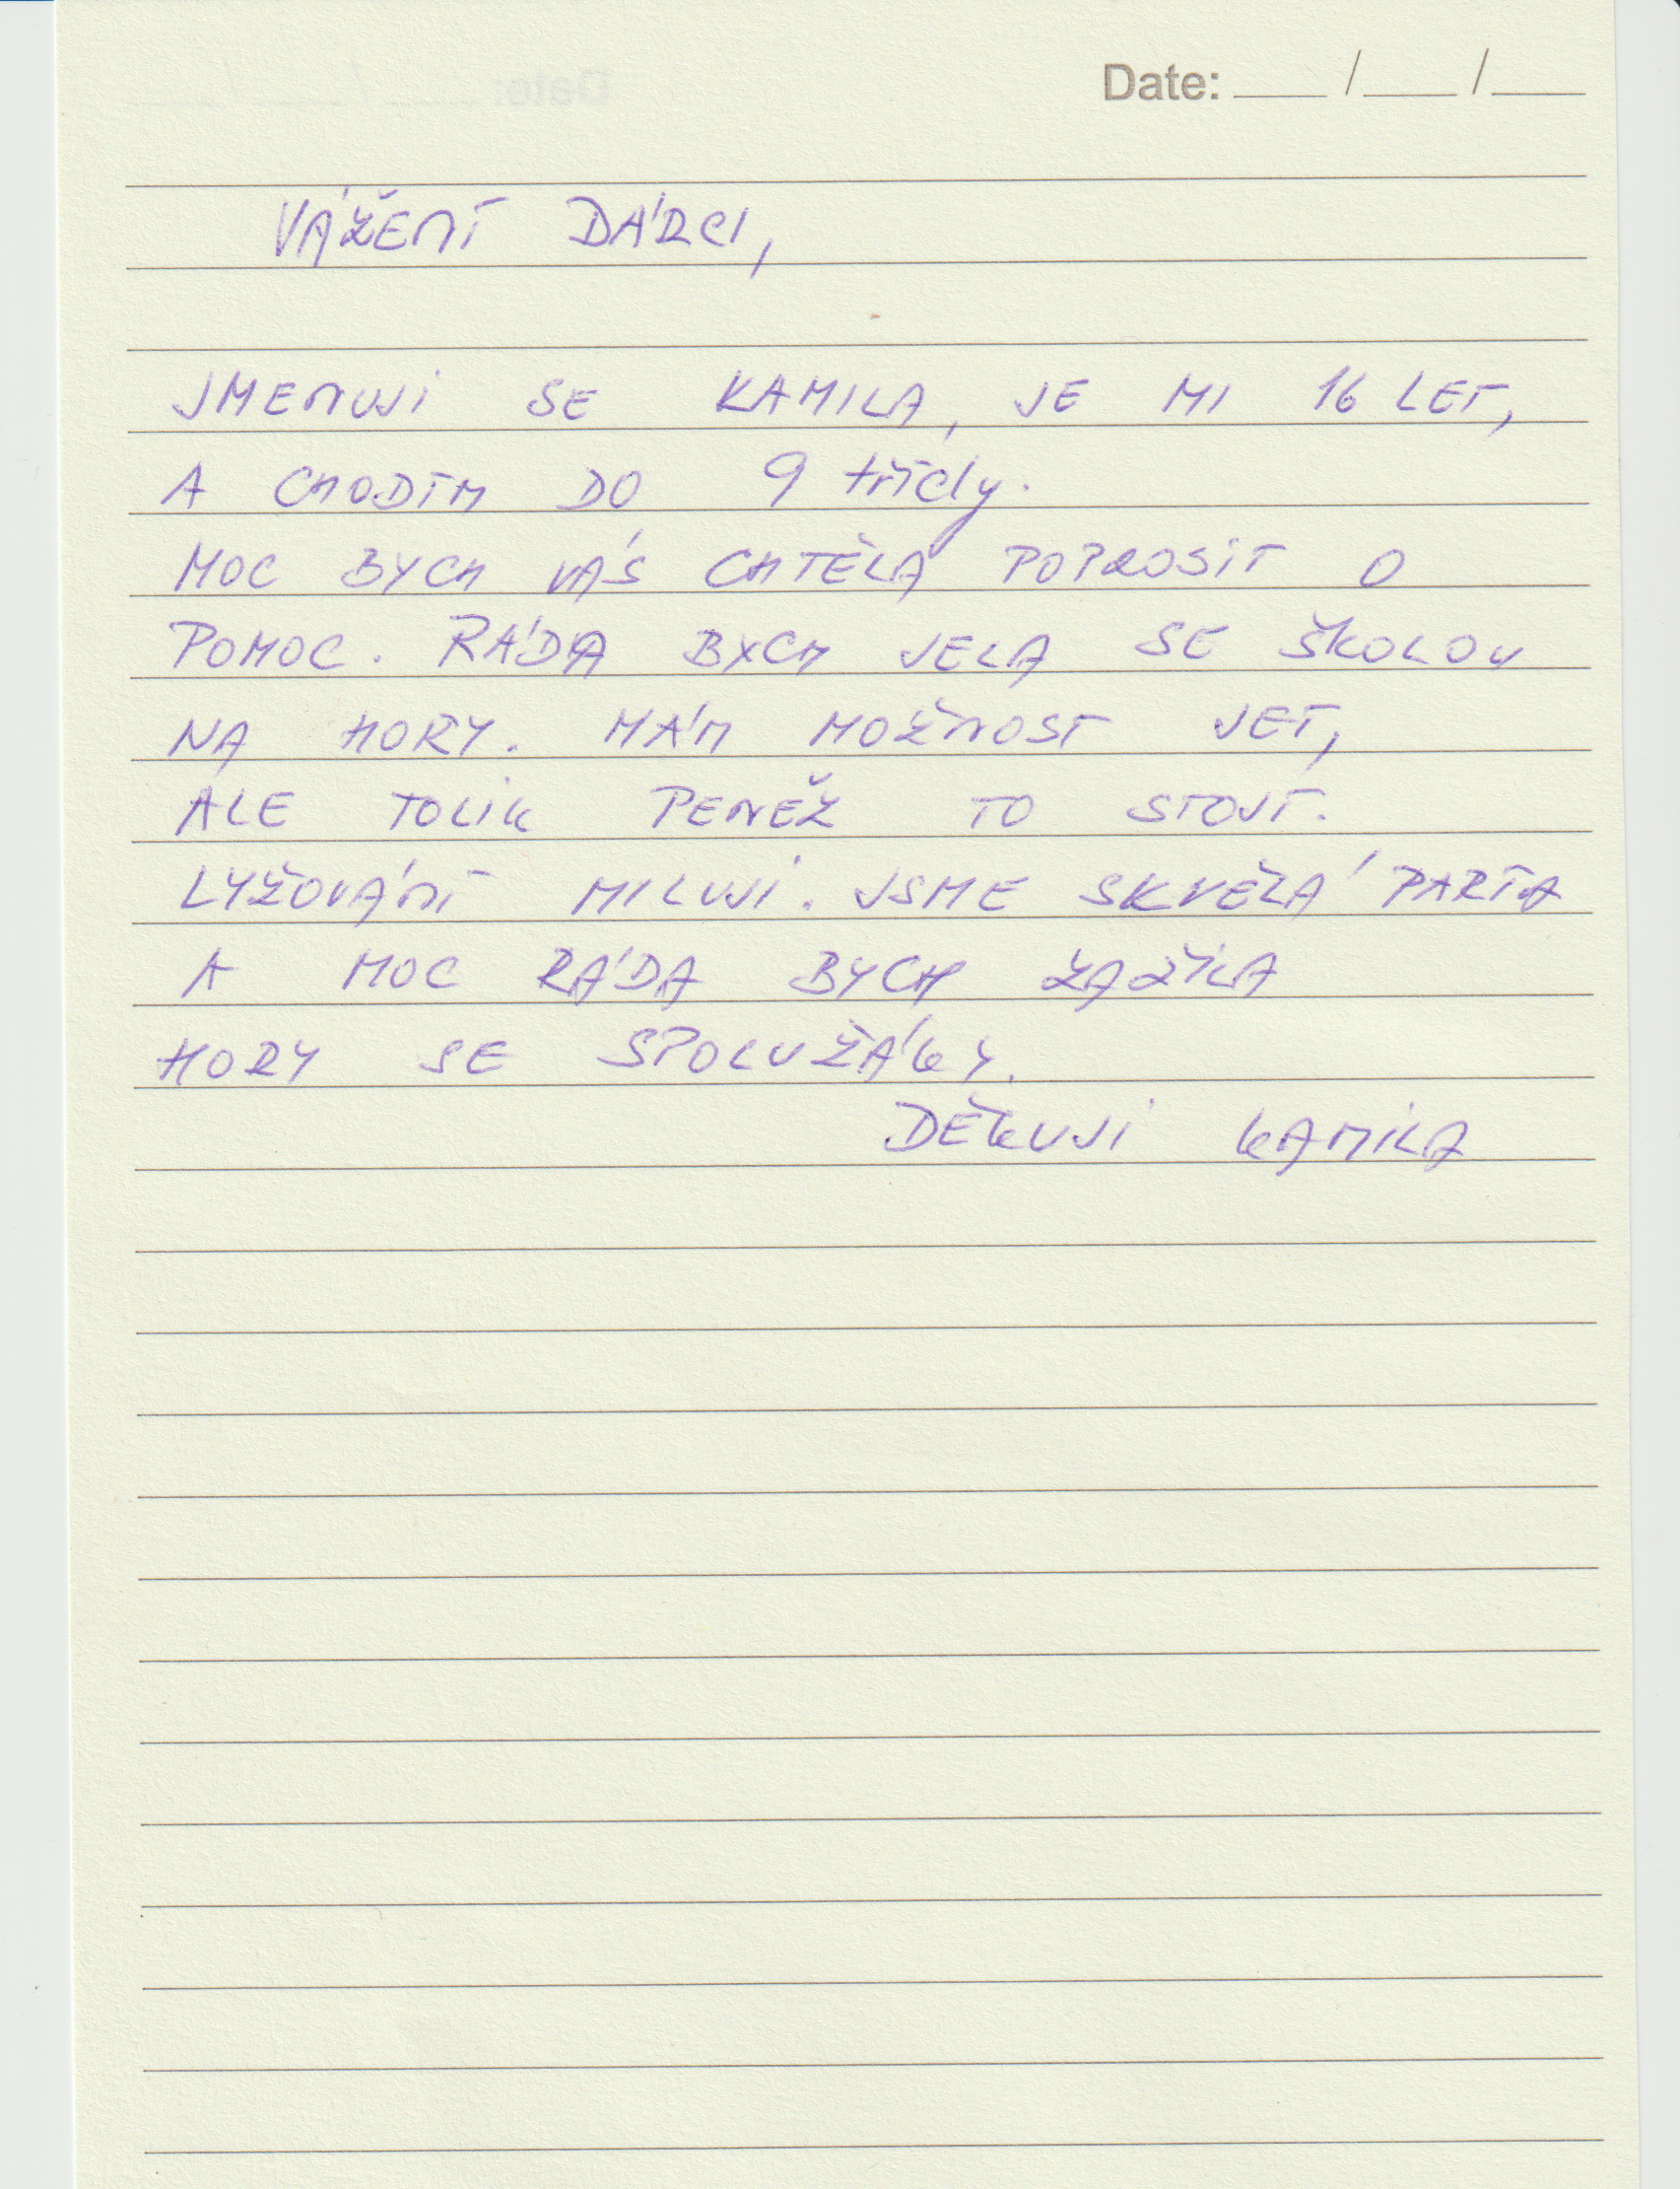 Date: ___/___/___
VÁŽENÍ DÁRCI,
JMENUJI SE KAMILA, JE MI 16 LET,
A CHODÍM DO 9 třídy.
MOC BYCH VÁS CHTĚLA POPROSIT O
POMOC. RÁDA BYCH JELA SE ŠKOLOU
NA HORY. MÁM MOŽNOST JET,
ALE TOLIK PENĚŽ TO STOJÍ.
LYŽOVÁNÍ MILUJI. JSME SKVĚLÁ PARTA
A MOC RÁDA BYCH ZAŽILA
HORY SE SPOLUŽÁKY.
DĚKUJI KAMILA